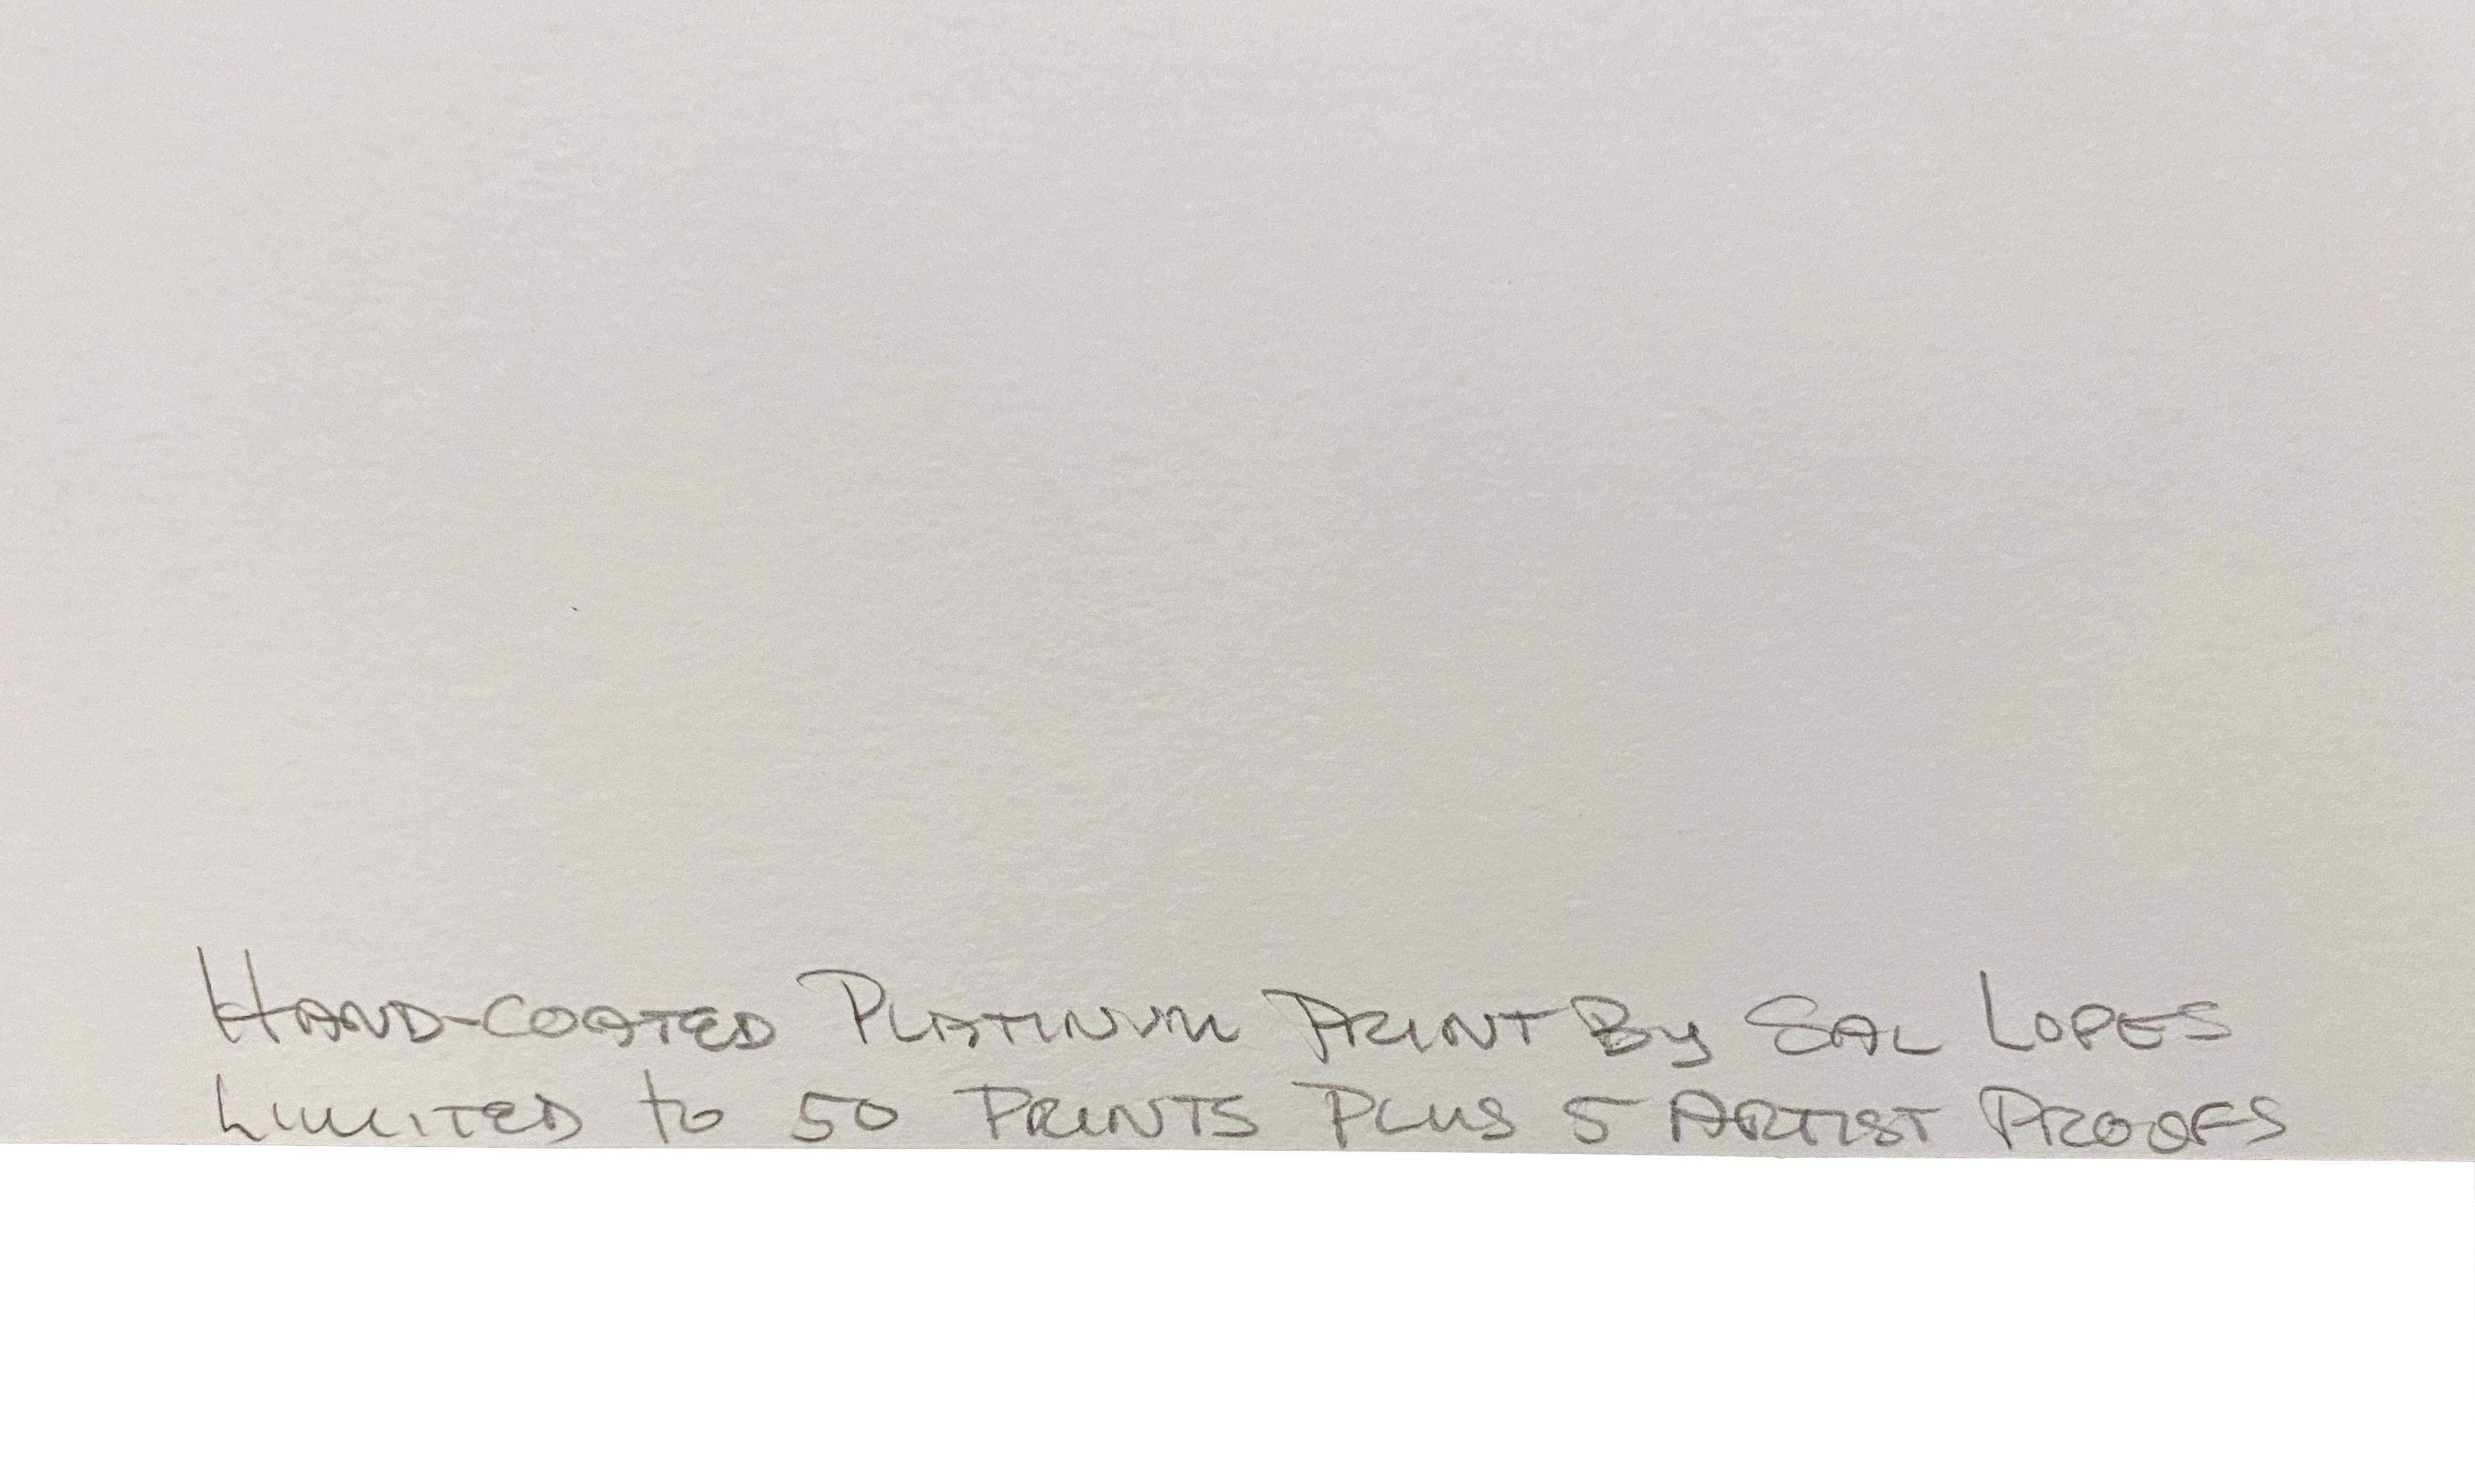 HAND-COATED PLATINUM PRINT By SAL LOPES
LIMITED to 50 PRINTS PLUS 5 ARTIST PROOFS